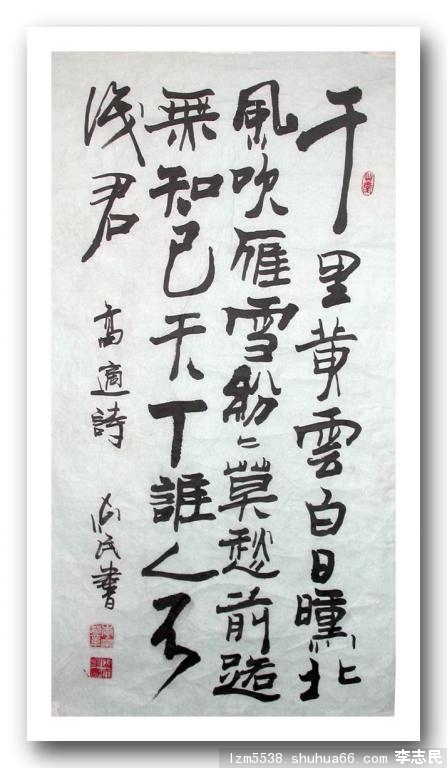 千里黄雲白日曛北
風吹雁雪紛〻莫愁前路
無知己天下誰人不
識君
高適詩
志民書
lzm5538.shuhua66.com 李志民